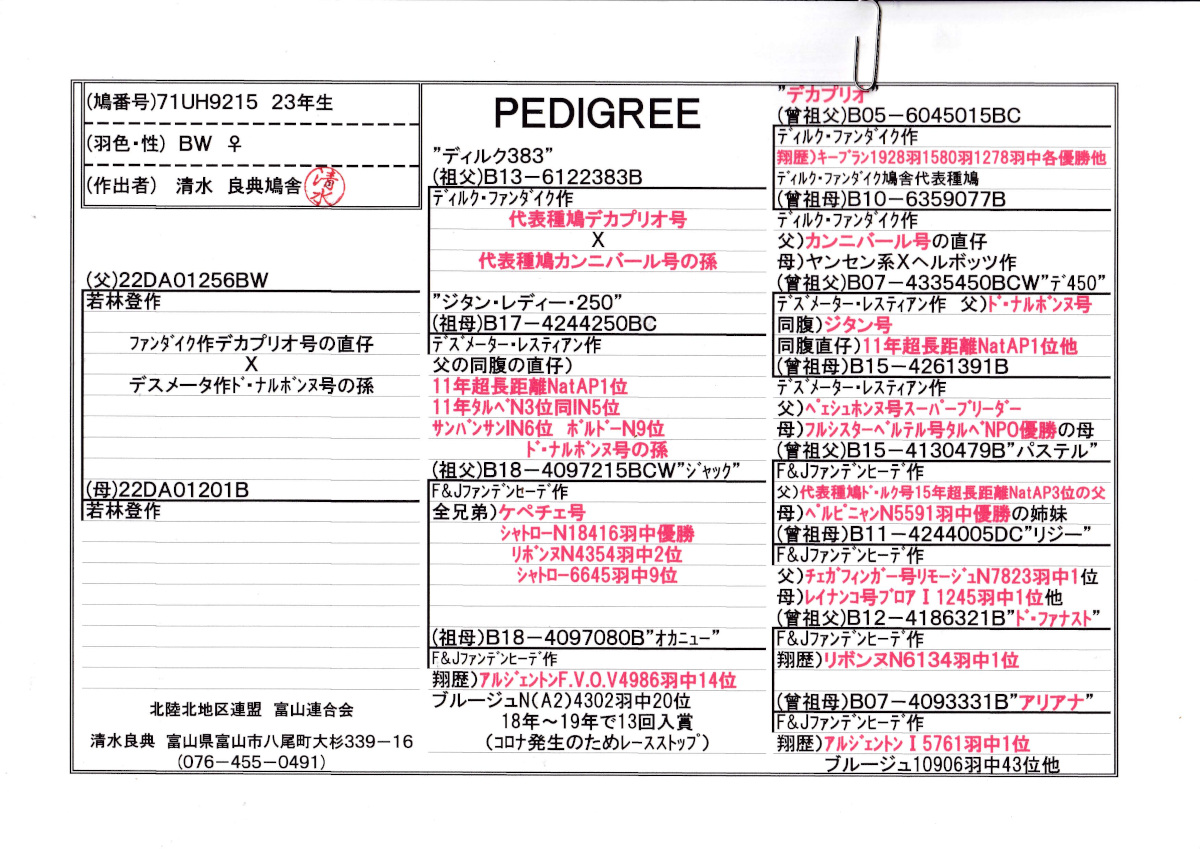 (鳩番号)71UH9215 23年生
(羽色・性) BW ♀
(作出者) 清水 良典鳩舎
清水
(父)22DA01256BW
若林登作
ファンダイク作デカプリオ号の直仔
X
デスメータ作ド・ナルボンヌ号の孫
(母)22DA01201B
若林登作
北陸北地区連盟 富山連合会
清水良典 富山県富山市八尾町大杉339-16
(076-455-0491)
PEDIGREE
"ディルク383"
(祖父)B13-6122383B
ディルク・ファンダイク作
代表種鳩デカプリオ号
X
代表種鳩カンニバール号の孫
"ジタン・レディー・250"
(祖母)B17-4244250BC
デズメーター・レスティアン作
父の同腹の直仔)
11年超長距離NatAP1位
11年タルベN3位同IN5位
サンバンサンIN6位 ボルドーN9位
ド・ナルボンヌ号の孫
(祖父)B18-4097215BCW"ジャック"
F&Jファンデンヒーデ作
全兄弟)ケペチェ号
シャトローN18416羽中優勝
リボンヌN4354羽中2位
シャトロー6645羽中9位
(祖母)B18-4097080B"オカニュー"
F&Jファンデンヒーデ作
翔歴)アルジェントンF.V.O.V4986羽中14位
ブルージュN(A2)4302羽中20位
18年~19年で13回入賞
(コロナ発生のためレースストップ)
"デカプリオ"
(曾祖父)B05-6045015BC
ディルク・ファンダイク作
翔歴)キープラン1928羽1580羽1278羽中各優勝他
ディルク・ファンダイク鳩舎代表種鳩
(曾祖母)B10-6359077B
ディルク・ファンダイク作
父)カンニバール号の直仔
母)ヤンセン系Xヘルボッツ作
(曾祖父)B07-4335450BCW"デ450"
デズメーター・レスティアン作 父)ド・ナルボンヌ号
同腹)ジタン号
同腹直仔)11年超長距離NatAP1位他
(曾祖母)B15-4261391B
デズメーター・レスティアン作
父)ペェシュホンヌ号スーパーブリーダー
母)フルシスターベルテル号タルベNPO優勝の母
(曾祖父)B15-4130479B"パステル"
F&Jファンデンヒーデ作
父)代表種鳩ド・ルク号15年超長距離NatAP3位の父
母)ペルピニャンN5591羽中優勝の姉妹
(曾祖母)B11-4244005DC"リジー"
F&Jファンデンヒーデ作
父)チェガフィンガー号リモージュN7823羽中1位
母)レイナンコ号ブロアⅠ1245羽中1位他
(曾祖父)B12-4186321B"ド・ファナスト"
F&Jファンデンヒーデ作
翔歴)リボンヌN6134羽中1位
(曾祖母)B07-4093331B"アリアナ"
F&Jファンデンヒーデ作
翔歴)アルジェントンⅠ5761羽中1位
ブルージュ10906羽中43位他